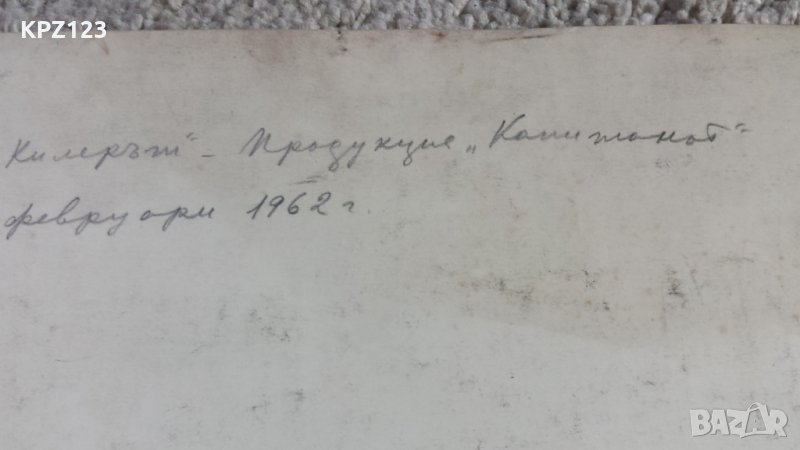 KPZ123
Килерът" - Продукция „Капитанат"
февруари 1962 г.
BAZAR